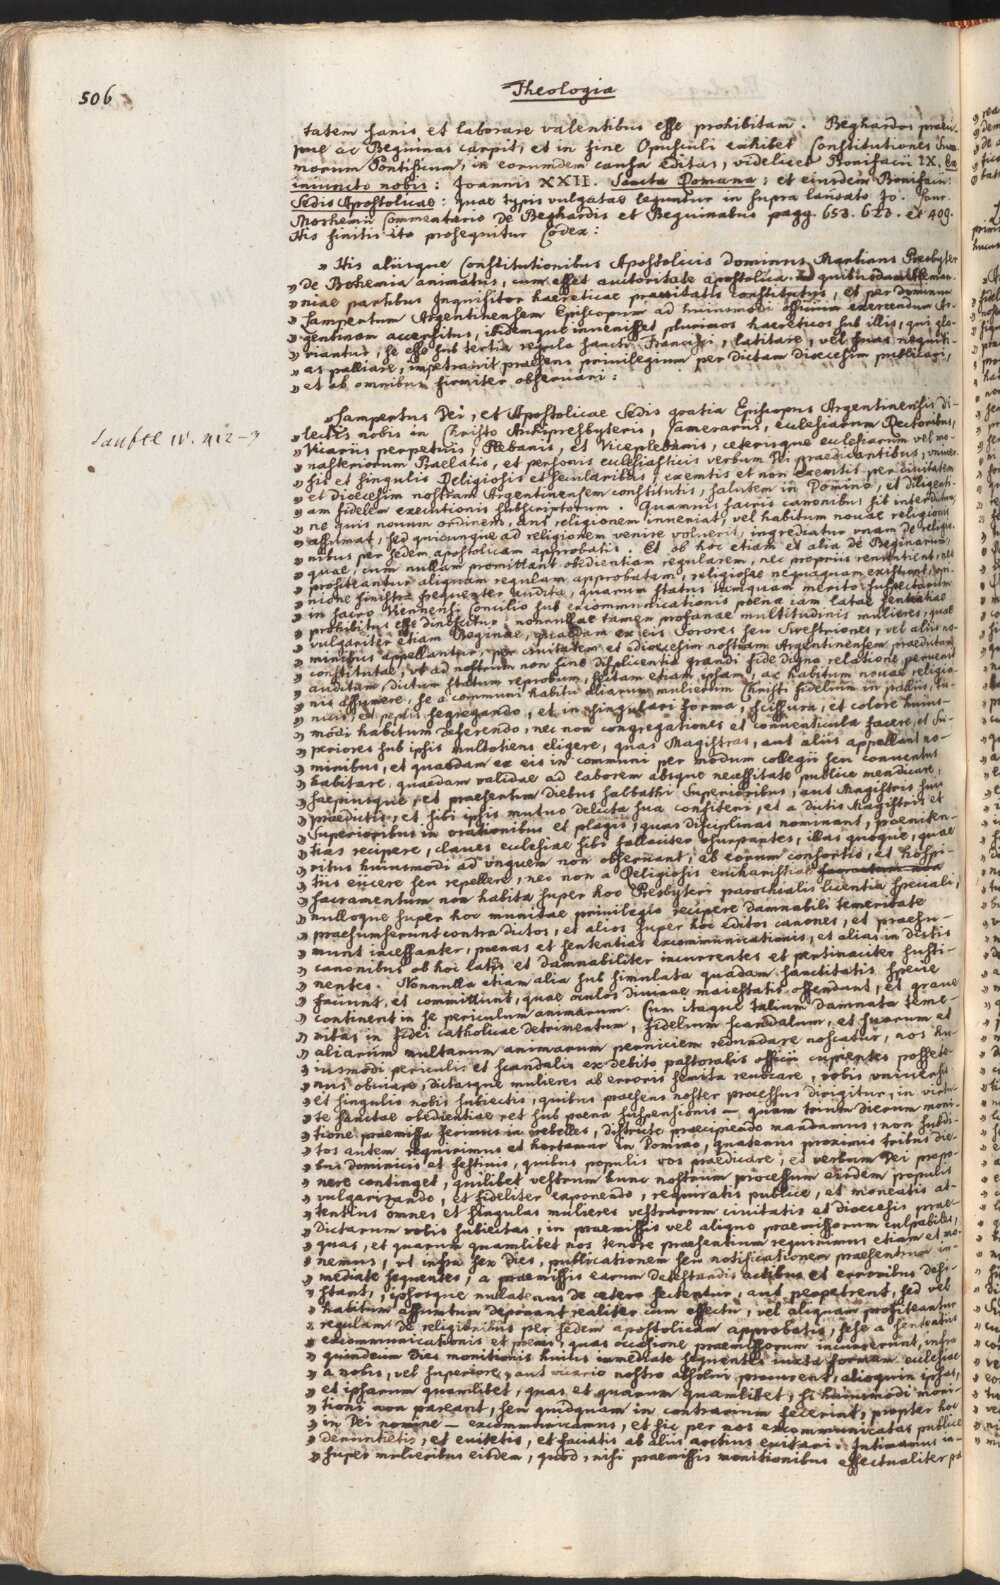 506
Theologia
tatem sanis et laborare valentibus esse prohibitam. Beghardos praeci-
pue ac Beguinas carpit, et in fine Opusculi exhibet Constitutiones Sum-
morum Pontificum, in eorumdem causa editas, videlicet Bonifacii IX. Ex
iniuncto nobis: Joannis XXII. Sancta Romana: et eiusdem Bonifacii:
Sedis Apostolicae: quae typis vulgatae leguntur in supra laudato Jo. Laur.
Moshemii Commentario de Beghardis et Beguinabus pagg. 653. 623. et 409.
His finitis ita prosequitur Codex:
» His aliisque Constitutionibus Apostolicis Dominus Martinus Presbyter
» de Bohemia animatus, cum esset autoritate apostolica in quibusdam Aleman-
» niae partibus Inquisitor haereticae pravitatis constitutus, et per Dominum
» Lampertum Argentinensem Episcopum ad huiusmodi officium exercendum Ar-
» gentinam accersitus, ibidemque invenisset plurimos haereticos sub illis, qui glo-
» riantur, se esse sub tertia regula sancti Francisci, latitare, vel suas nequiti-
» as palliare, impetravit praesens privilegium per dictam dioecesim publicari,
» et ab omnibus firmiter observari:
» Lampertus Dei, et Apostolicae Sedis gratia Episcopus Argentinensis di-
Sanftl IV. 412-3
» lectis nobis in Christo Archipresbyteris, Camerariis, ecclesiarum Rectoribus,
» Vicariis perpetuis, Plebanis, et Viceplebanis, ceterisque ecclesiarum vel mo-
» nasteriorum Praelatis, et personis ecclesiasticis verbum Dei praedicantibus, vniver-
» sis et singulis Religiosis et secularibus, exemtis et non exemtis per civitatem
» et dioecesim nostram Argentinensem constitutis, salutem in Domino, et diligenti-
» am fidelem executionis subscriptorum. Quamvis sacris canonibus sit interdictum,
» ne quis novum ordinem, aut religionem inveniat, vel habitum novae religionis
» assumat, sed quicunque ad religionem venire voluerit, ingrediatur vnam de religio-
» nibus per sedem apostolicam approbatis. Et ob hoc etiam et alia de Beginarum,
» quae, cum nullam promittant obedientiam regularem, nec propriis renuntient, nec
» profiteantur aliquam regulam approbatam, religiosae nequaquam existunt, opi-
» nione sinistra frequenter audita, quarum status tamquam merito suspectarum
» in sacro Viennensi Concilio sub excommunicationis poena iam latae sententiae
» prohibitus esse dinoscitur: nonnullae tamen profanae multitudinis mulieres, quae
» vulgariter etiam Beginae, quaedam ex eis Sorores seu Swestriones, vel aliis no-
» minibus appellantur, per civitatem et dioecesim nostram Argentinensem praedictam
» constitutae, vt ad nostrum non sine displicentia grandi fide digna relatione pervenit
» auditum, dictum statum reprobum, sectam etiam ipsam, ac habitum novae religio-
» nis assumere, se a communi habitu aliarum mulierum Christi fidelium in palliis, tu-
» nicis, et peplis segregando, et in singulari forma, scissura, et colore huius-
» modi habitum deferendo, nec non congregationes et conventicula facere, et Su-
» periores sub ipsis multotiens eligere, quas Magistras, aut aliis appellant no-
» minibus, et quaedam ex eis in communi per modum collegii seu conventus
» habitare, quaedam validae ad laborem absque necessitate publice mendicare,
» saepiusque, et praesertim diebus sabbathi Superioribus, aut Magistris suis
» praedictis, et sibi ipsis mutuo delicta sua confiteri, et a dictis Magistris et
» Superioribus in orationibus et plagis, quas disciplinas nominant, poeniten-
» tias recipere, claves ecclesiae sibi fallaciter vsurpantes, illas quoque, quae
» ritus huiusmodi ad vnguem non observant, ab eorum consortio, et hospi-
» tiis eiicere seu repellere, nec non a Religiosis eucharistiae
» sacramentum non habita super hoc Presbyteri parochialis licentia speciali,
» nulloque super hoc munitae privilegio recipere damnabili temeritate
» praesumserunt contra dictos, et alios super hoc editos canones, et praesu-
» munt incessanter, poenas et sententias excommunicationis, et alias in dictis
» canonibus ob hoc latas et damnabiliter incurrentes et pertinaciter susti-
» nentes. Nonnulla etiam alia sub simulata quadam sanctitatis specie
» faciunt, et committunt, quae oculos divinae maiestatis offendunt, et grave
» continent in se periculum animarum. Cum itaque talium damnata teme-
» ritas in fidei catholicae detrimentum, fidelium scandalum, et suarum et
» aliarum multarum animarum perniciem redundare noscatur, nos hu-
» iusmodi periculis et scandalis ex debito pastoralis officii cupientes posseten-
» nus obviare, dictasque mulieres ab erroris semita revocare, vobis vniversis
» et singulis nobis subiectis, quibus praesens noster processus dirigitur, in virtu-
» te sanctae obedientiae et sub poena suspensionis — quam trium dierum moni-
» tione praemissa ferimus in rebelles, districte praecipiendo mandamus, non subdi-
» tos autem requirimus et hortamur in Domino, quatenus proximis tribus die-
» bus dominicis et festivis, quibus populis vos praedicare, et verbum Dei propo-
» nere continget, quilibet vestrum hunc nostrum processum eisdem populis
» vulgarizando, et fideliter exponendo, requiratis publice, et moneatis at-
» tentius omnes et singulas mulieres vestrarum civitatis et dioecesis prae-
» dictarum vobis subiectas, in praemissis vel aliquo praemissorum culpabiles,
» quas, et quarum quamlibet nos tenore praesentium requirimus etiam et mo-
» nemus, vt infra sex dies, publicationem seu notificationem praesentium im-
» mediate sequentes, a praemissis earum detestandis actibus et erroribus desi-
» stant, ipsosque nullatenus de cetero sectentur, aut perpetrent, sed vel
» habitum assumtum deponant realiter cum effectu, vel aliquam profiteantur
» regulam de religionibus per sedem apostolicam approbatis, sese a sententiis
» excommunicationis et poenis, quas occasione praemissorum incurrerunt, infra
» quindecim dies monitionis huius immediate sequentes iuxta formam ecclesiae
» a nobis, vel superiore, aut vicario nostro absolvi procurent, alioquin ipsas,
» et ipsarum quamlibet, quas et quarum quamlibet, si huiusmodi moni-
» tioni non pareant, seu quidquam in contrarium fecerint, propter hoc
» in Dei nomine — excommunicamus, et sic per nos excommunicatas publice
» denuntietis, et evitetis, et faciatis ab aliis arctius evitari. Intimamus in-
» super mulieribus eisdem, quod, nisi praemissis monitionibus effectualiter pa